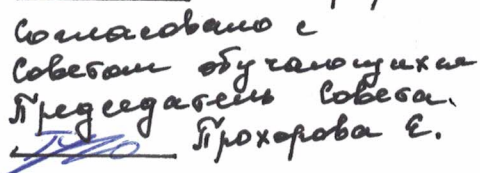 Согласовано с
Советом обучающихся
Председатель Совета.
Прохорова Е.